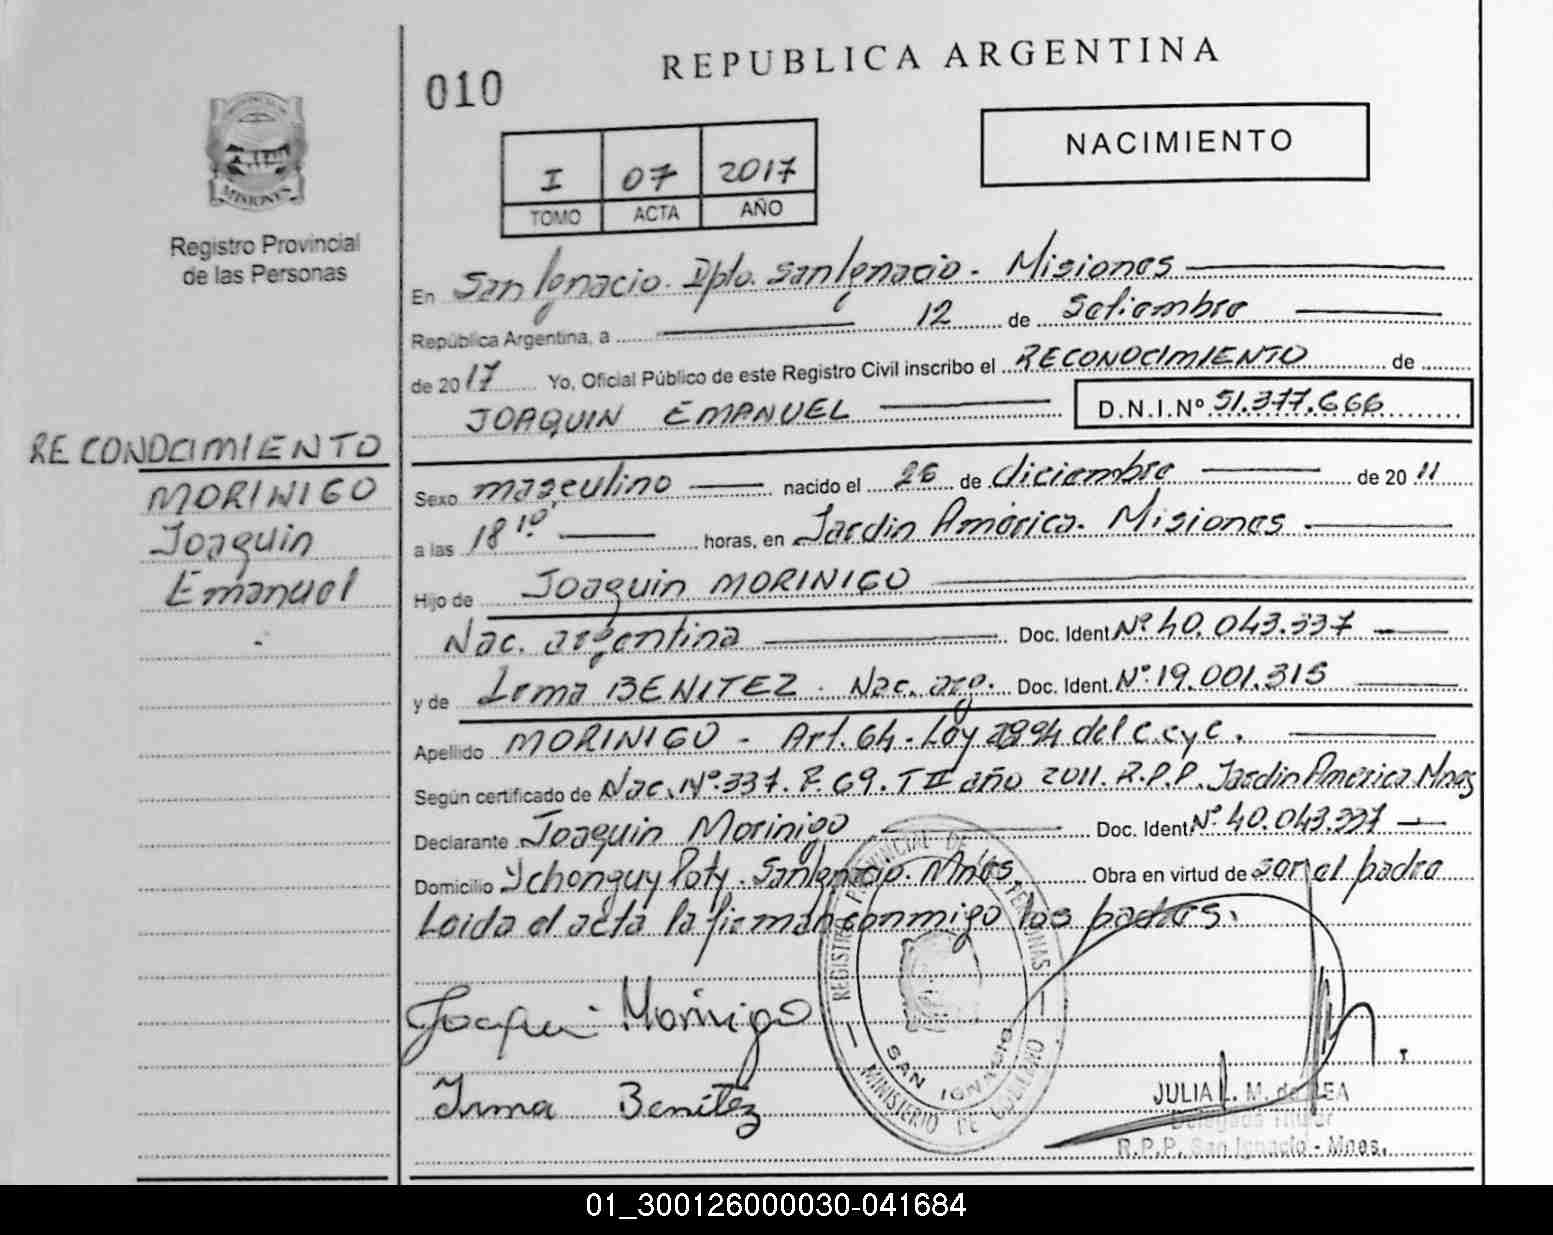 REPUBLICA ARGENTINA
010
NACIMIENTO
I 07 2017
TOMO ACTA AÑO
MISIONES
Registro Provincial
de las Personas
En San Ignacio. Dpto. San Ignacio. Misiones
República Argentina, a 12 de Setiembre
de 2017 Yo, Oficial Público de este Registro Civil inscribo el RECONOCIMIENTO de
JOAQUIN EMANUEL D.N.I.Nº 51.377.666
RECONOCIMIENTO
MORINIGO
Joaquin
Emanuel
Sexo masculino nacido el 26 de diciembre de 2011
a las 18 10' horas, en Jardin América. Misiones
Hijo de Joaquin MORINIGO
Nac. argentina Doc. Ident Nº 40.043.337
y de Irma BENITEZ. Nac. arg. Doc. Ident. Nº 19.001.315
Apellido MORINIGO - Art. 64 - Ley 2994 del C.cyC.
Según certificado de Nac. Nº 337. F. 69. T II año 2011. R.P.P. Jardin América. Mnes
Declarante Joaquin Morinigo Doc. Ident Nº 40.043.337
Domicilio Ychonguy Poty. San Ignacio. Mnes. Obra en virtud de ser el padre
Leida el acta la firman conmigo los padres.
Joaquin Morinigo
Irma Benitez
REGISTRO PROVINCIAL DE LAS PERSONAS
SAN IGNACIO
MINISTERIO DE GOBIERNO
JULIA L. M. de LEA
Delegada Titular
R.P.P. San Ignacio - Mnes.
01_300126000030-041684